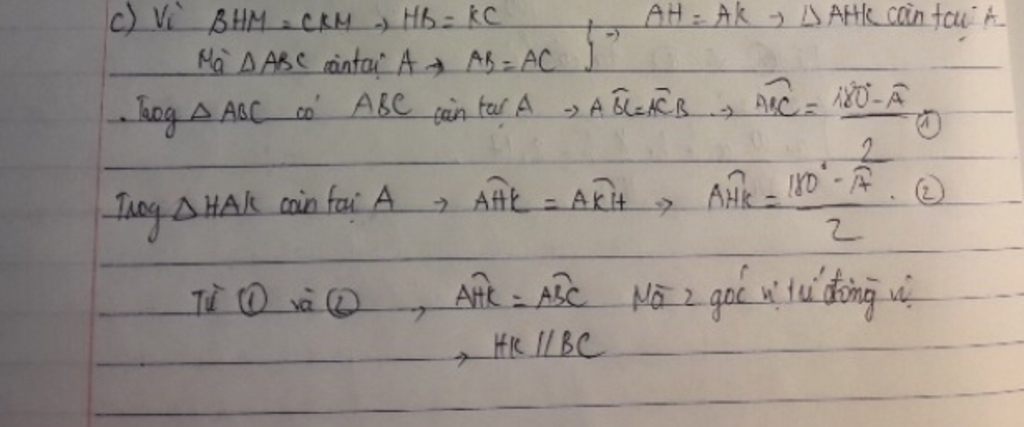 c) Vì BHM = CKM → HB = KC } → AH = AK → Δ AHK cân tại A
Mà Δ ABC cân tại A → AB = AC
. Trog Δ ABC có ABC cân tại A → ABC = ACB → ABC = 180° - A / 2 ①
Trog Δ HAK cân tại A → AHK = AKH → AHK = 180° - A / 2 . ②
Từ ① và ② → AHK = ABC Mà 2 góc vị trí đồng vị
→ HK // BC